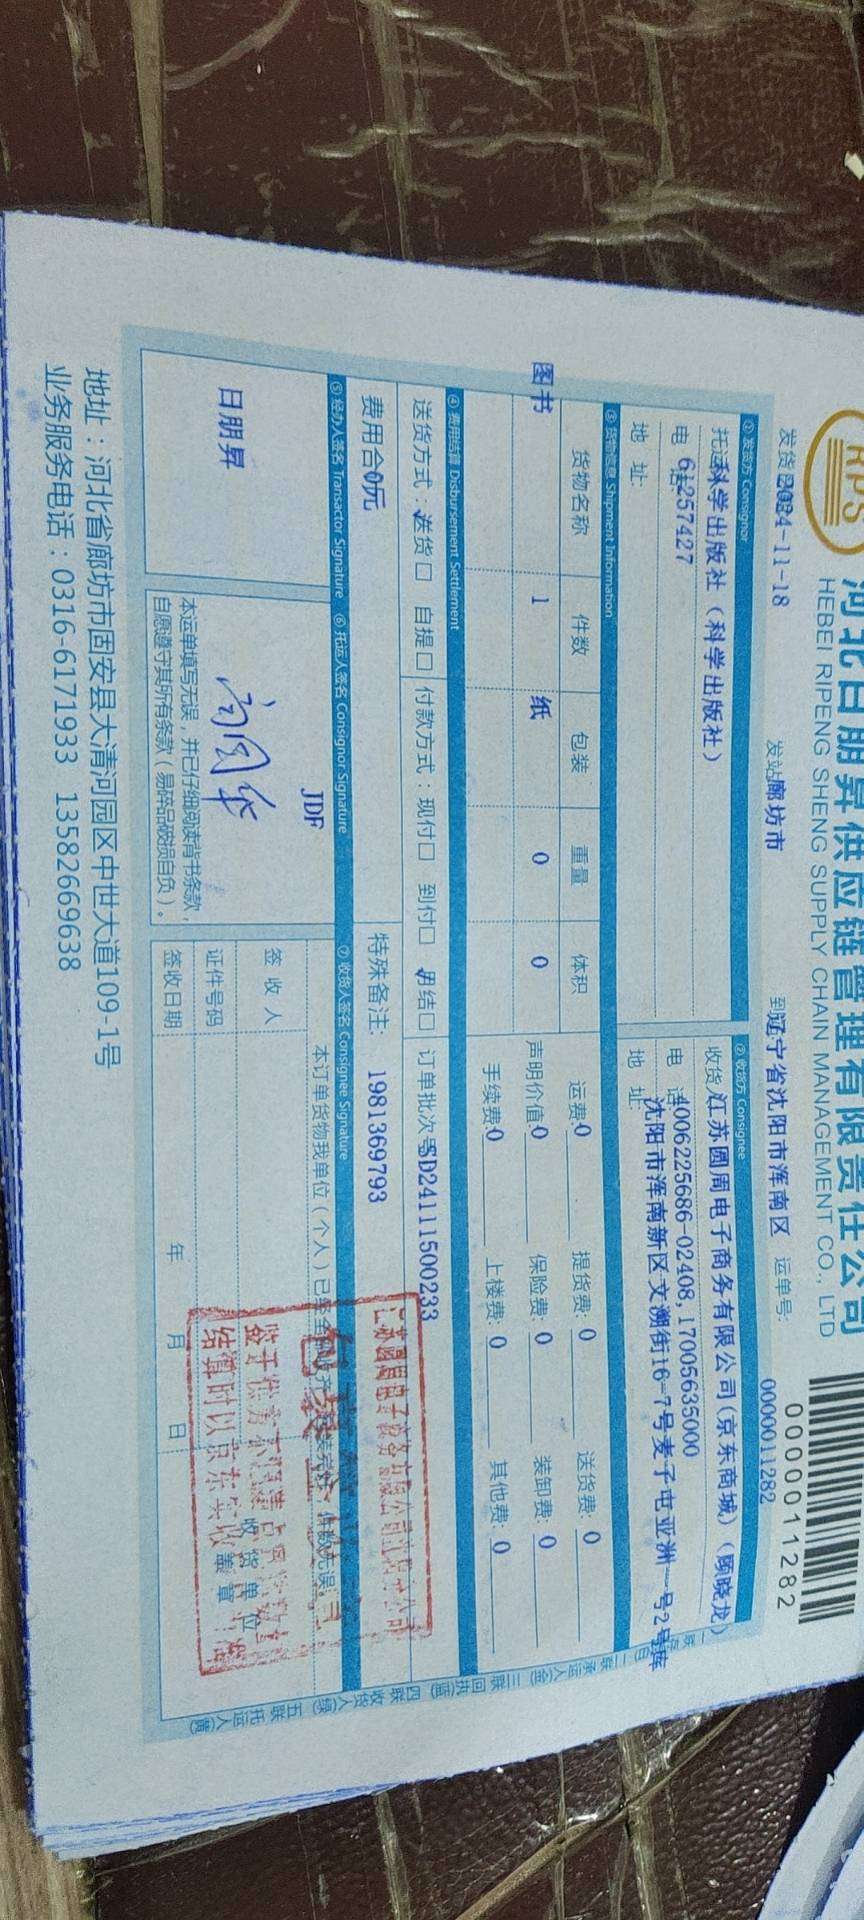 RPS
河北日朋昇供应链管理有限责任公司
HEBEI RIPENG SHENG SUPPLY CHAIN MANAGEMENT CO., LTD
0000011282
发货 2024-11-18 发站 廊坊市 到 辽宁省沈阳市浑南区 运单号: 0000011282
① 发货方 Consignor
托运 科学出版社（科学出版社）
电 话: 61257427
地 址:
② 收货方 Consignee
收货 江苏圆周电子商务有限公司(京东商城)（顾晓龙）
电 话 4006225686-02408, 17005635000
地 址: 沈阳市浑南新区文溯街16-7号麦子屯亚洲一号2号库
③ 货物信息 Shipment Information
货物名称 件数 包装 重量 体积
图书 1 纸 0 0
运费: 0 提货费: 0 送货费: 0
声明价值: 0 保险费: 0 装卸费: 0
手续费: 0 上楼费: 0 其他费: 0
④ 费用结算 Disbursement Settlement
送货方式：送货□ 自提□ 付款方式：现付□ 到付□ 月结□ 订单批次号 SD24111500233
费用合 0元 特殊备注: 1981369793
⑤ 经办人签名 Transactor Signature ⑥ 托运人签名 Consignor Signature ⑦ 收货人签名 Consignee Signature
日朋昇
JDF
本运单填写无误，并已仔细阅读背书条款，
自愿遵守其所有条款（易碎品破损自负）。
本订单货物我单位（个人）已
件数无误
签 收 人
证件号码
签收日期 年 月 日
收货单位
盖章
江苏圆周电子商务有限公司沈阳分公司
结算时以京东实收
一联存 二联承运人(金) 三联回执(蓝) 四联收货人(绿) 五联托运人(黄)
地址：河北省廊坊市固安县大清河园区中世大道109-1号
业务服务电话：0316-6171933 13582669638